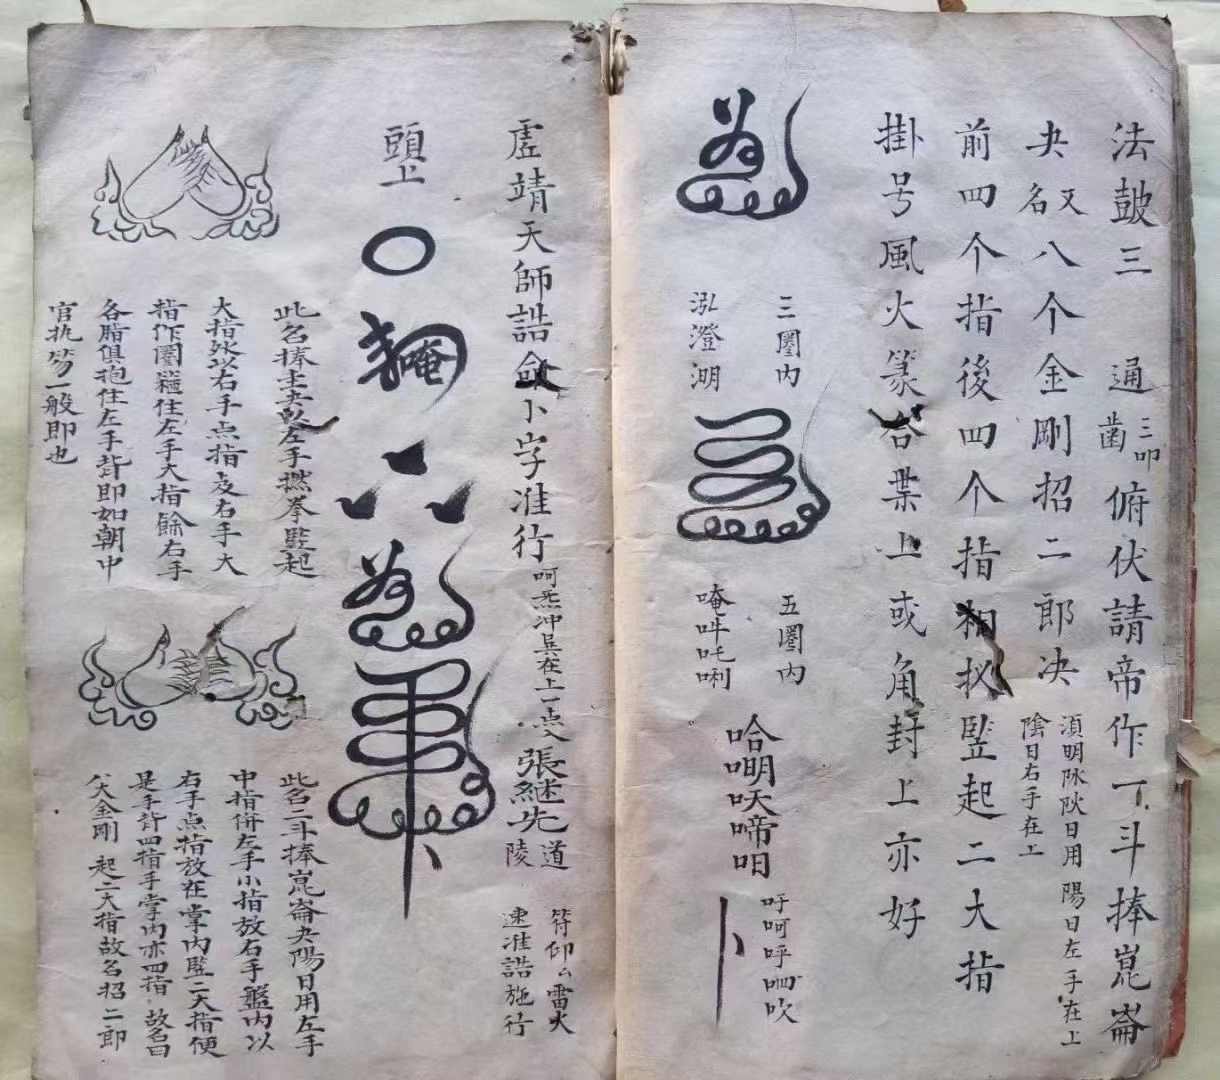 法鼓三　通齒三叩俯伏請帝作丁斗捧崑崙
夬又名八个金剛招二郎决須明陈陝日用陽日左手在上
陰日右手在上
前四个指後四个指相扠竖起二大指
掛号風火篆合業上或角封上亦好
三圈内
泓澄湖
五圈内
唵吽吒唎
哈㖠㕭啼呾
吁呵呼呬吹
虚靖天師誥命小字准行呵炁冲兵在上一点又張継先道陵
符仰厶雷火
速准誥施行
頭上
唵
此名捧圭夬即左手撚拳竪起
大指以右手点指及右手大
指作圈籠住左手大指餘右手
各脂俱抱住左手背即如朝中
官执笏一般即也
此名二斗捧崑崙夬陽日用左手
中指併左手小指放右手盤内以
右手点指放在掌内竪二大指便
是手背四指手掌内亦四指故名曰
八大金剛 起二大指故名招二郎